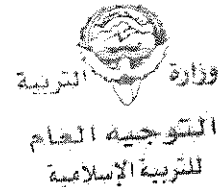 وزارة التربية
التوجيه العام
للتربية الإسلامية